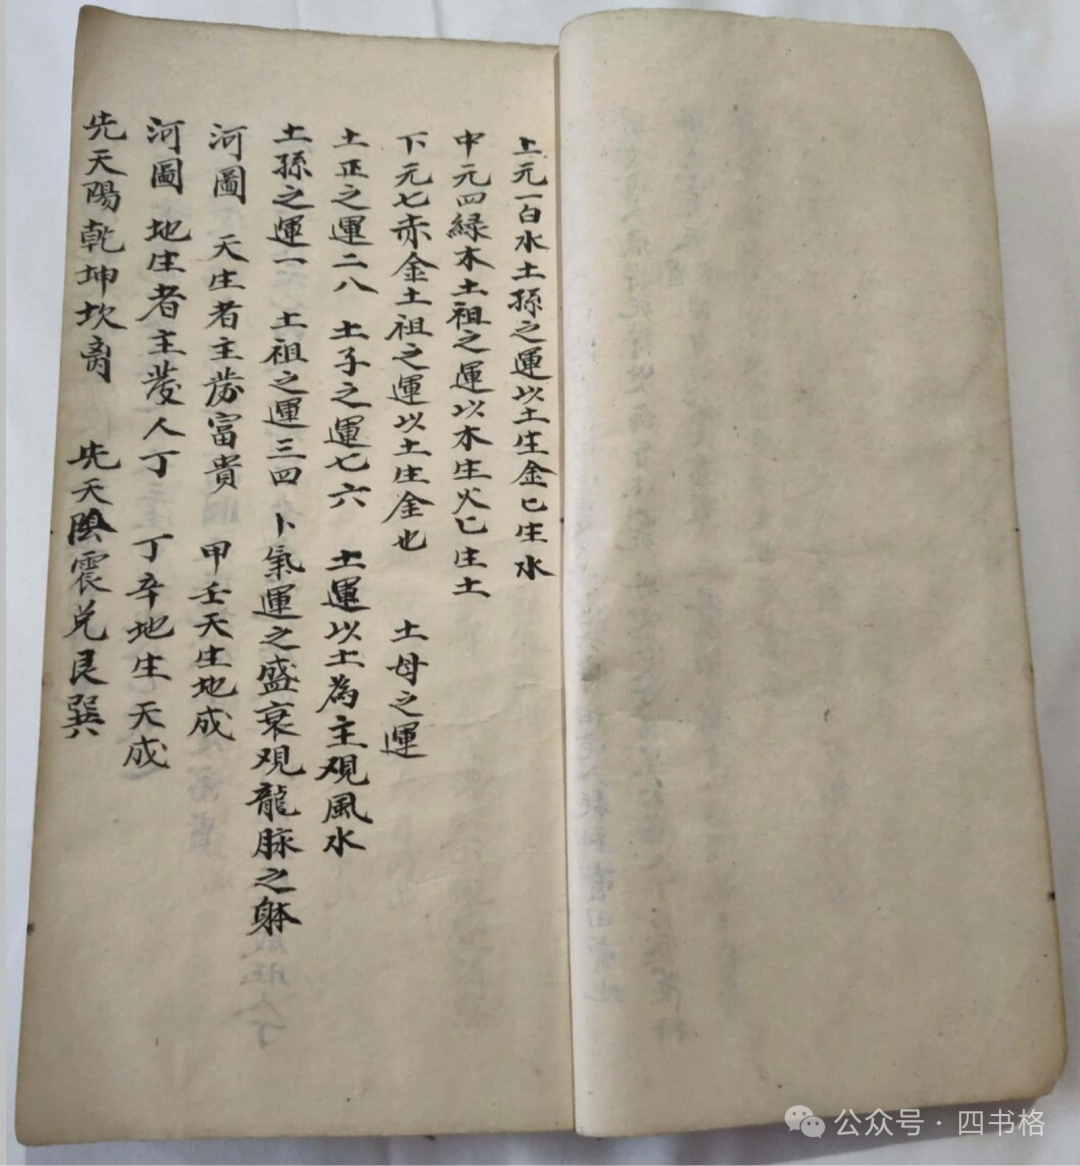 上元一白水土孫之運以土生金已生水
中元四緑木土祖之運以木生火已生土
下元七赤金土祖之運以土生金也　土母之運
土正之運二八　土子之運七六　土運以土為主观風水
土孫之運一　土祖之運三四　卜氣運之盛衰观龍脉之躰
河圖　天生者主發富貴　甲壬天生地成
河圖　地生者主發人丁　丁辛地生天成
先天陽乾坤坎离　先天陰震兑艮巽
公众号 · 四书格